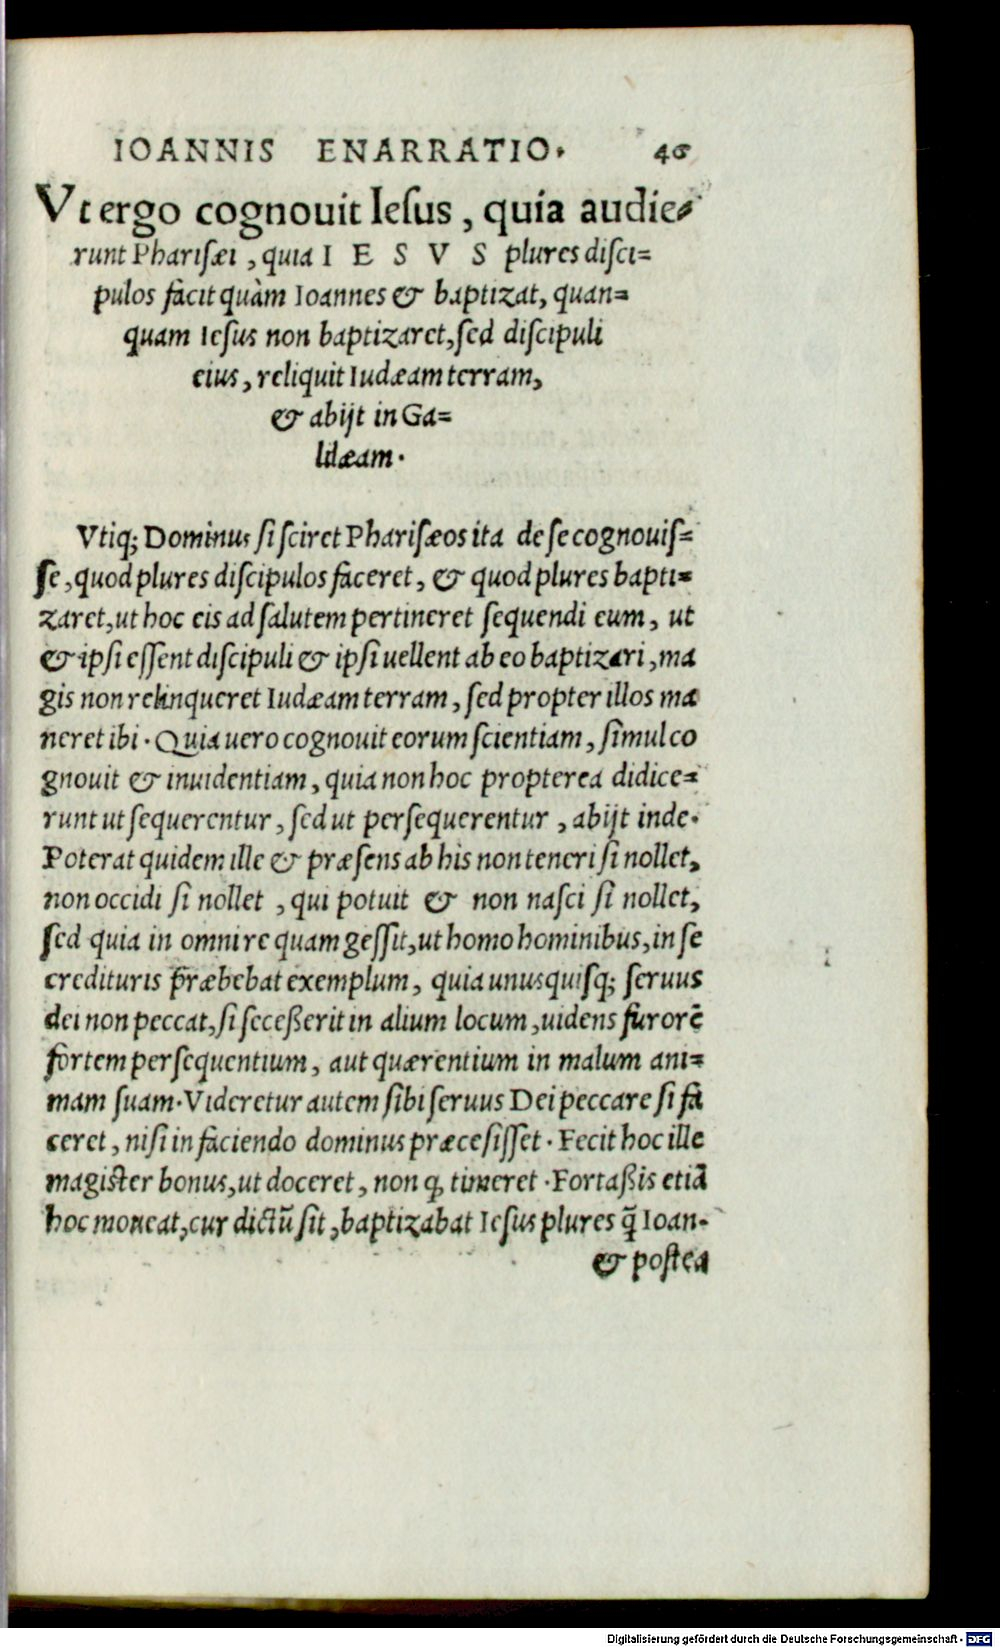 IOANNIS ENARRATIO. 46
Vt ergo cognouit Iesus, quia audie-
runt Pharisæi, quia I E S V S plures disci=
pulos facit quàm Ioannes & baptizat, quan=
quam Iesus non baptizaret, sed discipuli
eius, reliquit Iudæam terram,
& abijt in Ga=
lilæam.
Vtiq; Dominus si sciret Pharisæos ita de se cognouis=
se, quod plures discipulos faceret, & quod plures bapti=
zaret, ut hoc eis ad salutem pertineret sequendi eum, ut
& ipsi essent discipuli & ipsi uellent ab eo baptizari, ma
gis non relinqueret Iudæam terram, sed propter illos ma
neret ibi. Quia uero cognouit eorum scientiam, simul co
gnouit & inuidentiam, quia non hoc propterea didice=
runt ut sequerentur, sed ut persequerentur, abijt inde.
Poterat quidem ille & præsens ab his non teneri si nollet,
non occidi si nollet, qui potuit & non nasci si nollet,
sed quia in omni re quam gessit, ut homo hominibus, in se
credituris præbebat exemplum, quia unusquisq; seruus
dei non peccat, si secesserit in alium locum, uidens furorē
fortem persequentium, aut quærentium in malum ani=
mam suam. Videretur autem sibi seruus Dei peccare si fa
ceret, nisi in faciendo dominus præcesisset. Fecit hoc ille
magister bonus, ut doceret, non q̨ timeret. Fortassis etiā
hoc moneat, cur dictū sit, baptizabat Iesus plures q̄ Ioan.
& postea
Digitalisierung gefördert durch die Deutsche Forschungsgemeinschaft - DFG